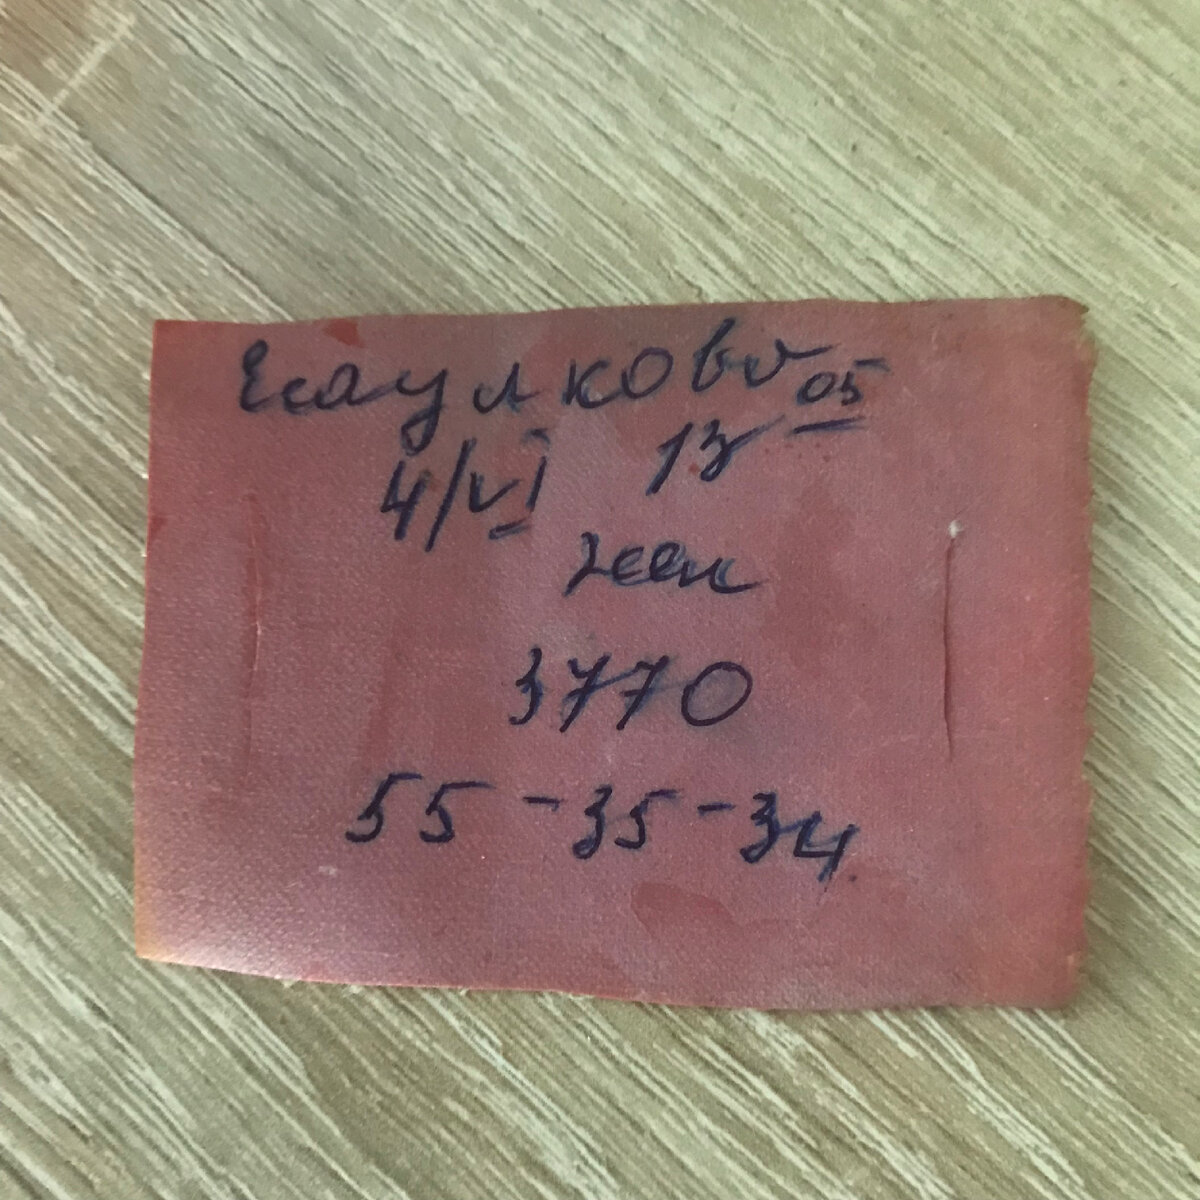 Есаулкова
4/VI 13 05
жен
3770
55-35-34